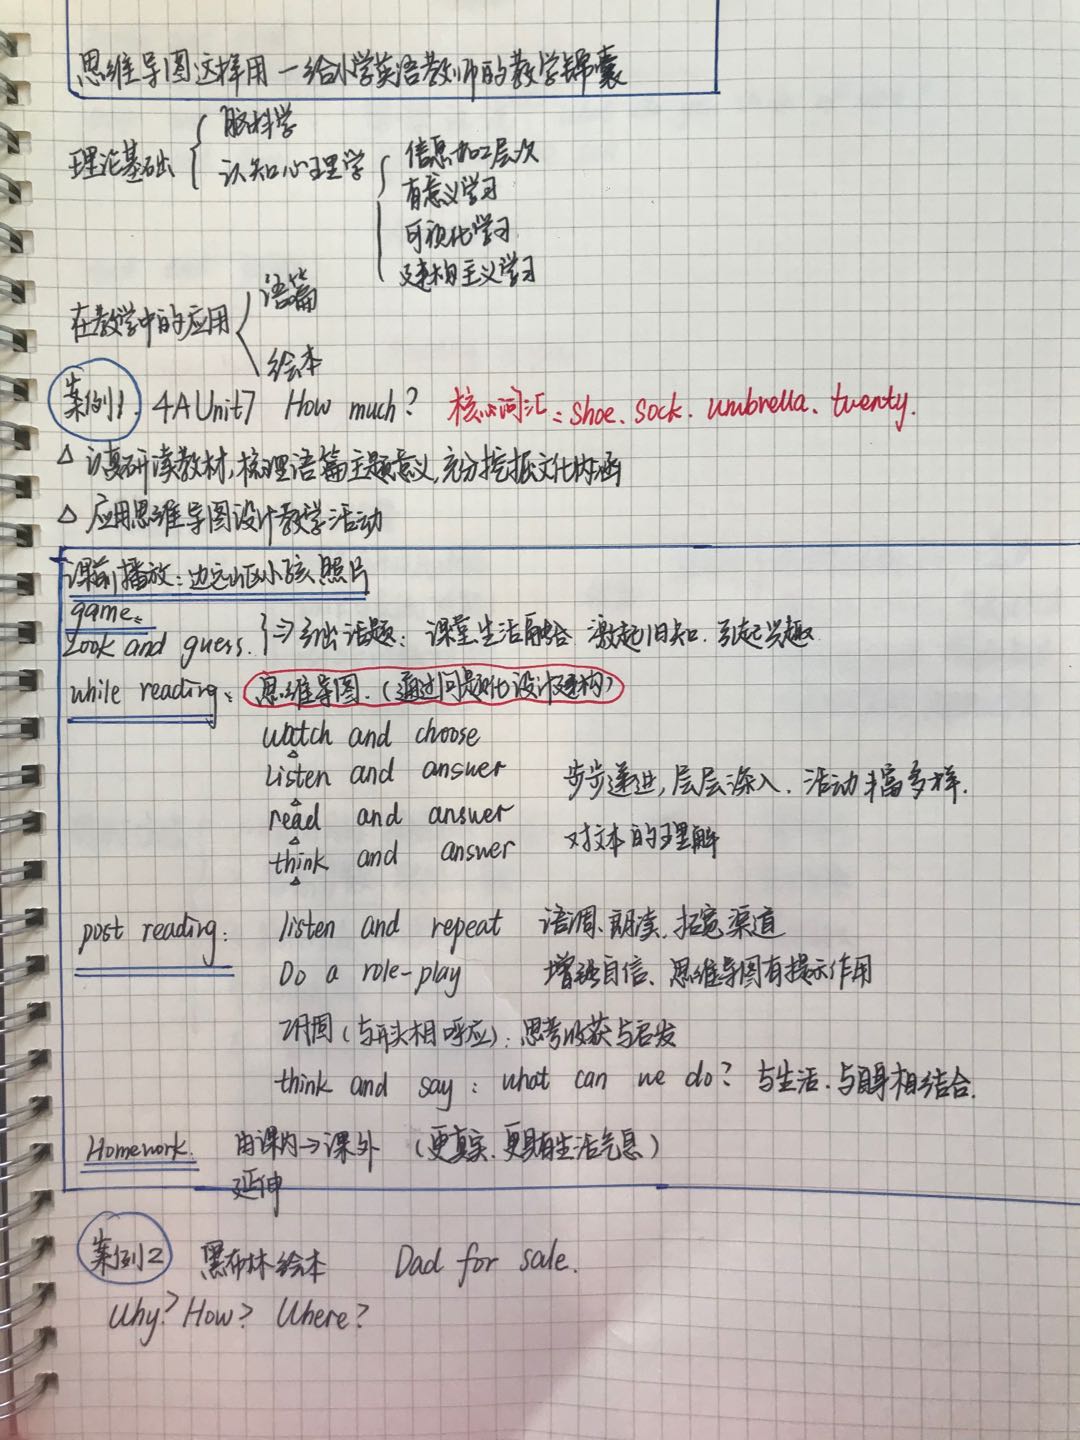 思维导图这样用 — 给小学英语教师的教学锦囊
理论基础 { 脑科学
认知心理学 { 信息加工层次
有意义学习
可视化学习
建构主义学习
在教学中的应用 语篇
绘本
案例1. 4A Unit7 How much? 核心词汇: shoe、sock、umbrella、twenty.
△ 认真研读教材,梳理语篇主题意义,充分挖掘文化内涵
△ 应用思维导图设计教学活动
课前播放: 边远山区小孩照片
game:
Look and guess. } ⇒ 引出话题: 课堂生活融合 激起旧知. 引起兴趣
while reading: 思维导图.(通过问题化设计建构)
watch and choose
listen and answer 步步递进,层层深入. 活动丰富多样.
read and answer
think and answer 对文本的理解
post reading: listen and repeat 语调、朗读、拓宽渠道
Do a role-play 增强自信、思维导图有提示作用
(与开头相呼应): 思考收获与启发
think and say: what can we do? 与生活、与自身相结合.
Homework. 由课内→课外 (更真实、更具有生活气息)
延伸
案例2 黑布林绘本 Dad for sale.
Why? How? Where?